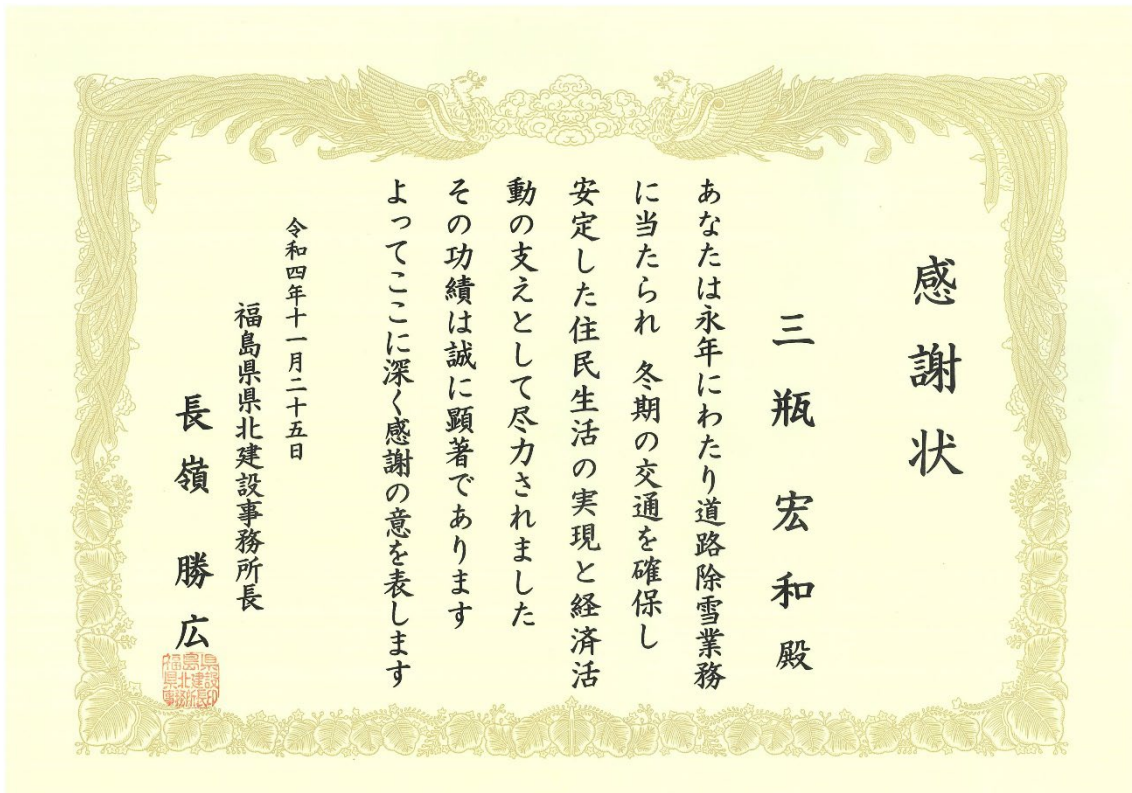 感謝状
三瓶宏和殿
あなたは永年にわたり道路除雪業務
に当たられ 冬期の交通を確保し
安定した住民生活の実現と経済活
動の支えとして尽力されました
その功績は誠に顕著であります
よってここに深く感謝の意を表します
令和四年十一月二十五日
福島県県北建設事務所長
長嶺勝広